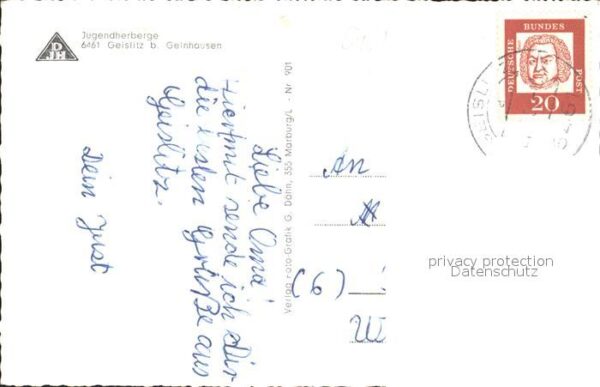 Jugendherberge
6461 Geislitz b. Gelnhausen
Liebe Oma!
Hiermit sende ich Dir
die besten Grüße aus
Geislitz.
Dein Just
Verlag Foto-Grafik G. Dahn, 355 Marburg/L - Nr. 901
An
(6)
DEUTSCHE
BUNDES
POST
20
GEISLI
privacy protection
Datenschutz